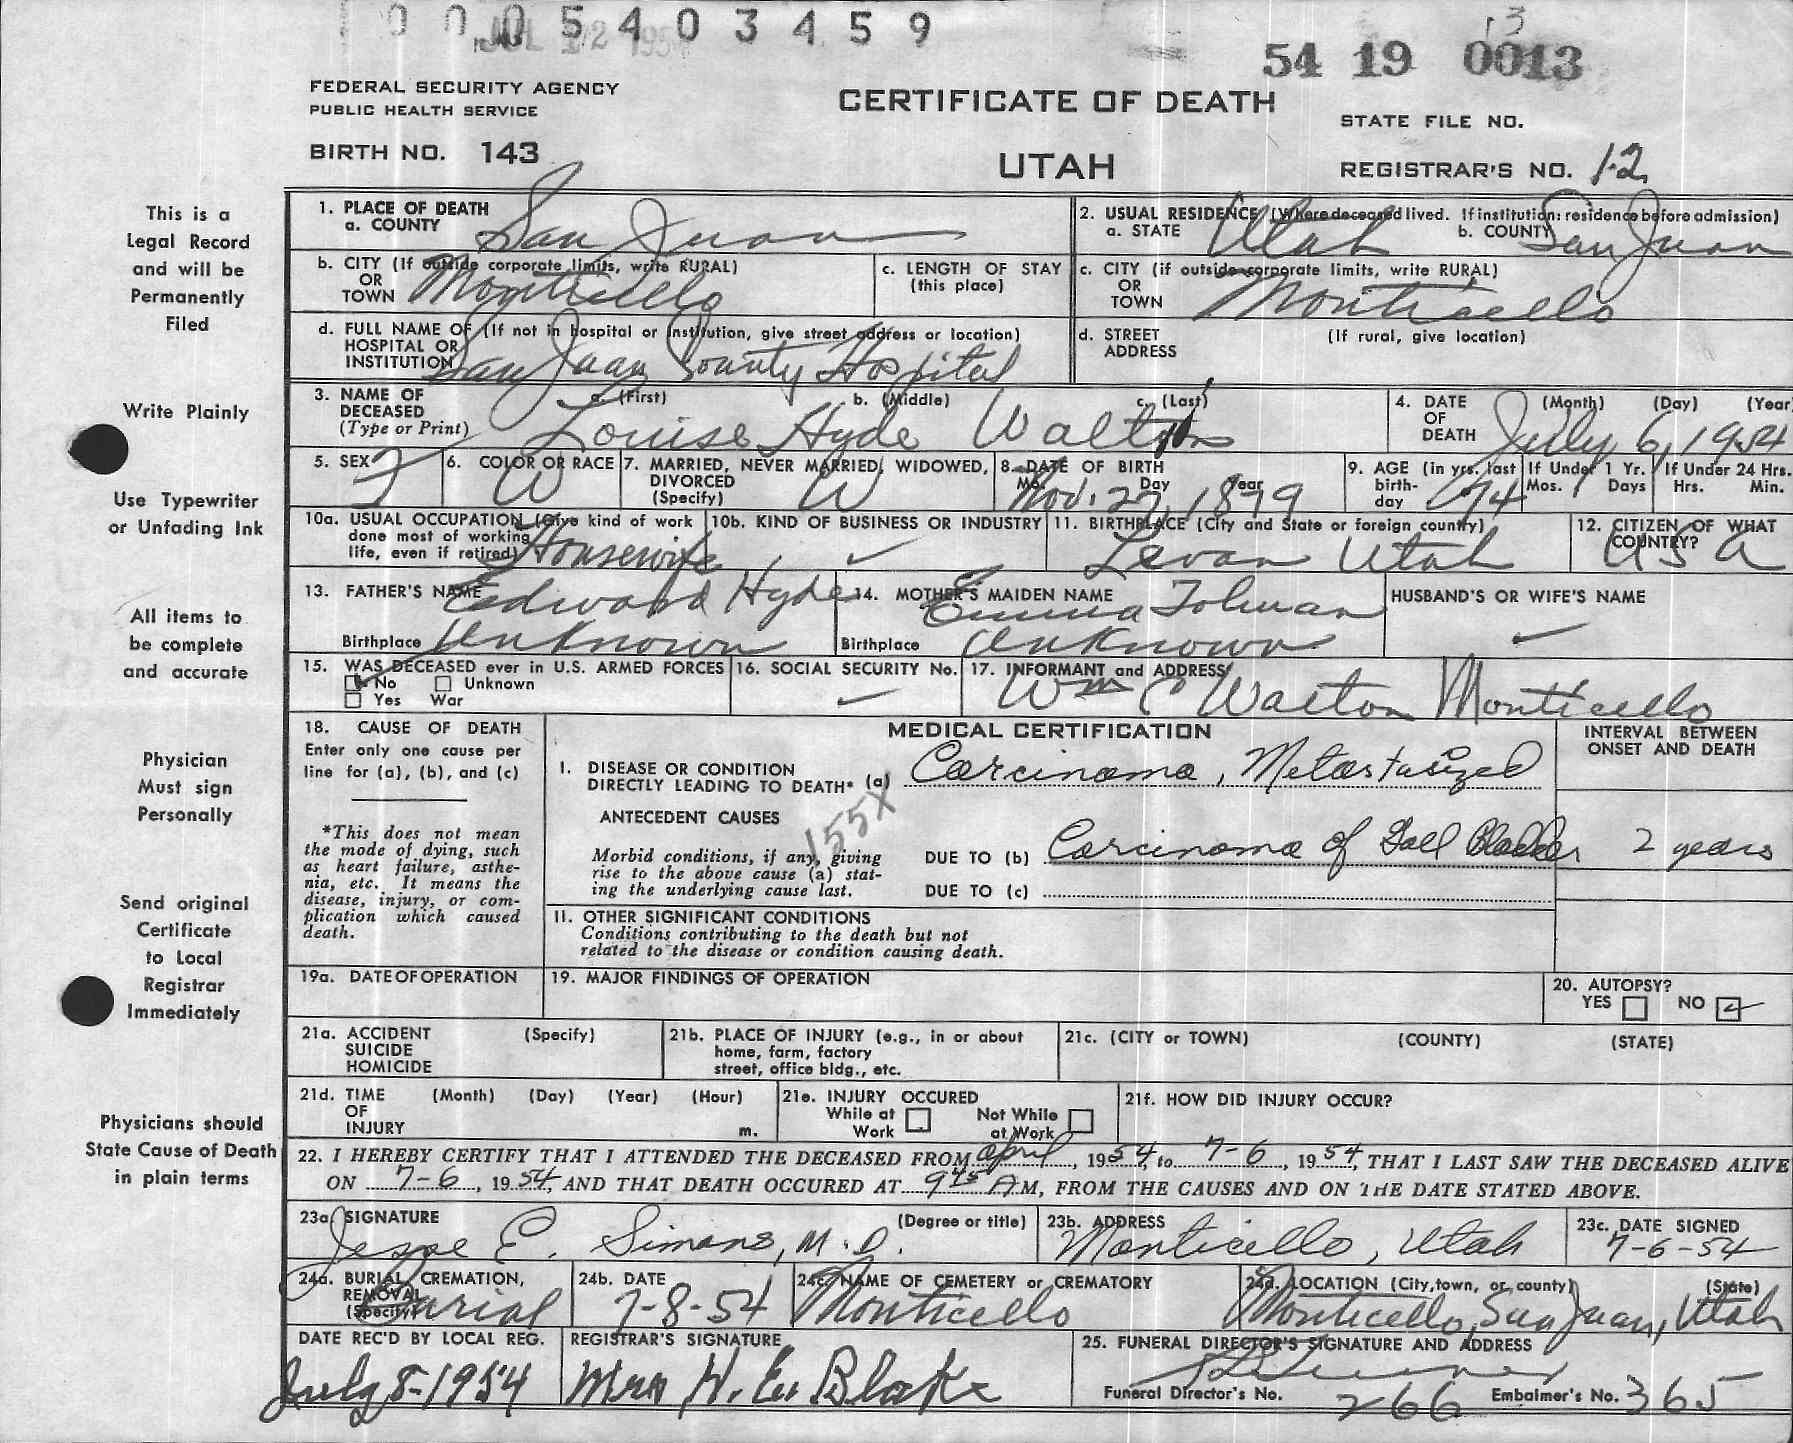 0005403459
JUL 12 195
13
54 19 0013
FEDERAL SECURITY AGENCY
PUBLIC HEALTH SERVICE
CERTIFICATE OF DEATH
STATE FILE NO.
BIRTH NO. 143
UTAH
REGISTRAR'S NO. 12
This is a
Legal Record
and will be
Permanently
Filed
Write Plainly
Use Typewriter
or Unfading Ink
All items to
be complete
and accurate
Physician
Must sign
Personally
Send original
Certificate
to Local
Registrar
Immediately
Physicians should
State Cause of Death
in plain terms
1. PLACE OF DEATH
a. COUNTY San Juan
2. USUAL RESIDENCE (Where deceased lived. If institution: residence before admission)
a. STATE Utah b. COUNTY San Juan
b. CITY (If outside corporate limits, write RURAL)
OR
TOWN Monticello
c. LENGTH OF STAY
(this place)
c. CITY (if outside corporate limits, write RURAL)
OR
TOWN Monticello
d. FULL NAME OF (If not in hospital or Institution, give street address or location)
HOSPITAL OR
INSTITUTION San Juan County Hospital
d. STREET (If rural, give location)
ADDRESS
3. NAME OF a. (First) b. (Middle) c. (Last)
DECEASED
(Type or Print) Louise Hyde Walton
4. DATE (Month) (Day) (Year)
OF
DEATH July 6, 1954
5. SEX F
6. COLOR OR RACE W
7. MARRIED, NEVER MARRIED, WIDOWED,
DIVORCED
(Specify) W
8. DATE OF BIRTH
Mo. Day Year
Nov. 27, 1879
9. AGE (in yrs. last
birth-
day 74
If Under 1 Yr.
Mos. Days
If Under 24 Hrs.
Hrs. Min.
10a. USUAL OCCUPATION (Give kind of work
done most of working
life, even if retired) Housewife
10b. KIND OF BUSINESS OR INDUSTRY
11. BIRTHPLACE (City and State or foreign country)
Levan Utah
12. CITIZEN OF WHAT
COUNTRY? USA
13. FATHER'S NAME Edward Hyde
Birthplace Unknown
14. MOTHER'S MAIDEN NAME Emma Tolman
Birthplace Unknown
HUSBAND'S OR WIFE'S NAME
15. WAS DECEASED ever in U.S. ARMED FORCES
No Unknown
Yes War
16. SOCIAL SECURITY No.
17. INFORMANT and ADDRESS
Wm C Walton Monticello
18. CAUSE OF DEATH
Enter only one cause per
line for (a), (b), and (c)
*This does not mean
the mode of dying, such
as heart failure, asthe-
nia, etc. It means the
disease, injury, or com-
plication which caused
death.
MEDICAL CERTIFICATION
INTERVAL BETWEEN
ONSET AND DEATH
I. DISEASE OR CONDITION
DIRECTLY LEADING TO DEATH* (a) Carcinoma, Metastasized
155X
ANTECEDENT CAUSES
Morbid conditions, if any, giving
rise to the above cause (a) stat-
ing the underlying cause last.
DUE TO (b) Carcinoma of Gall Bladder 2 years
DUE TO (c)
II. OTHER SIGNIFICANT CONDITIONS
Conditions contributing to the death but not
related to the disease or condition causing death.
19a. DATE OF OPERATION
19. MAJOR FINDINGS OF OPERATION
20. AUTOPSY?
YES NO
21a. ACCIDENT (Specify)
SUICIDE
HOMICIDE
21b. PLACE OF INJURY (e.g., in or about
home, farm, factory
street, office bldg., etc.
21c. (CITY or TOWN) (COUNTY) (STATE)
21d. TIME (Month) (Day) (Year) (Hour)
OF
INJURY m.
21e. INJURY OCCURED
While at Work Not While at Work
21f. HOW DID INJURY OCCUR?
22. I HEREBY CERTIFY THAT I ATTENDED THE DECEASED FROM April, 1954, to 7-6, 1954, THAT I LAST SAW THE DECEASED ALIVE
ON 7-6, 1954, AND THAT DEATH OCCURED AT 9 45 A M, FROM THE CAUSES AND ON THE DATE STATED ABOVE.
23a. SIGNATURE (Degree or title)
Jesse E. Simons, M.D.
23b. ADDRESS
Monticello, Utah
23c. DATE SIGNED
7-6-54
24a. BURIAL, CREMATION,
REMOVAL
(Specify) Burial
24b. DATE
7-8-54
24c. NAME OF CEMETERY or CREMATORY
Monticello
24d. LOCATION (City, town, or county) (State)
Monticello, San Juan, Utah
DATE REC'D BY LOCAL REG.
July 8-1954
REGISTRAR'S SIGNATURE
Mrs H. E. Blake
25. FUNERAL DIRECTOR'S SIGNATURE AND ADDRESS
Funeral Director's No. 266 Embalmer's No. 365